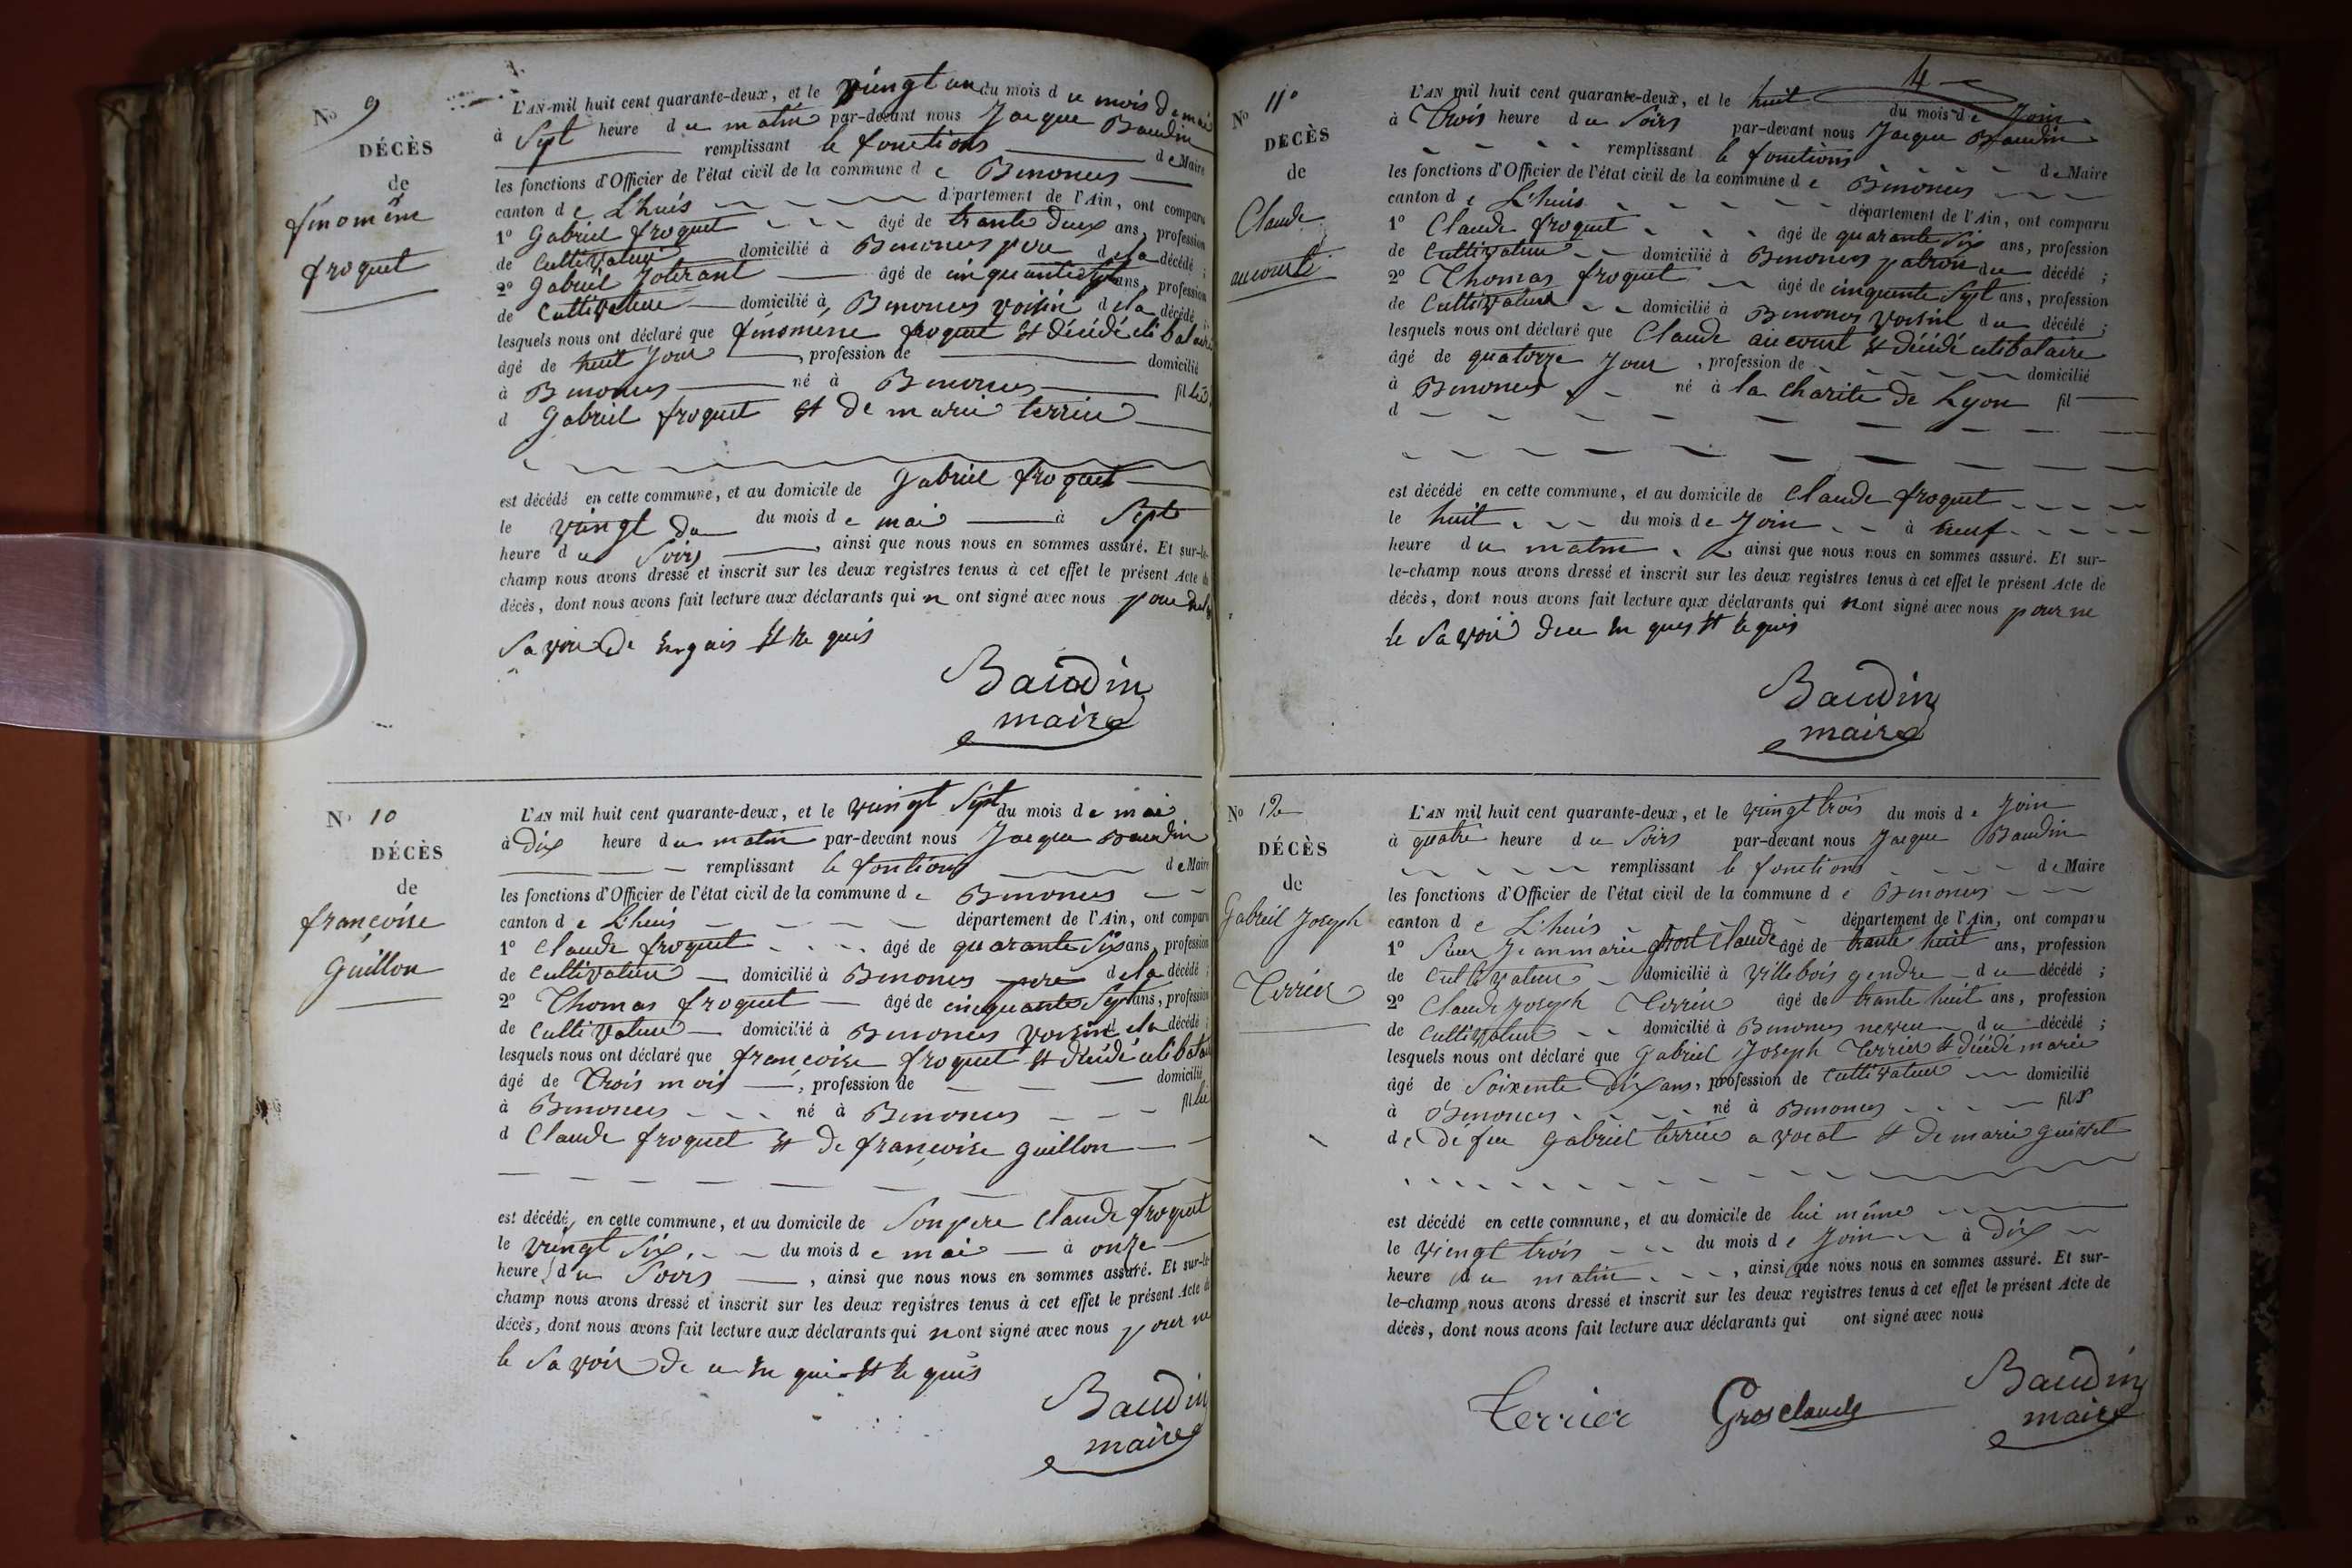 No 9
DÉCÈS
de
finomène
froquet
L'AN mil huit cent quarante-deux, et le vingt un du mois du mois de mai
à Sept heure du matin par-devant nous Jacque Baudin
remplissant le fonctions de Maire
les fonctions d'Officier de l'état civil de la commune de Benonces
canton de L'huis département de l'Ain, ont comparu
1° Gabriel froquet âgé de trante deux ans, profession
de Cultivateur domicilié à Benonces pere de la décédé ;
2° Gabriel âgé de cinquante Sept ans, profession
de Cultivateur domicilié à Benonces voisin de la décédé ;
lesquels nous ont déclaré que finomene froquet et décédé
âgé de huit Jour, profession de domicilié
à Benonces né à Benonces fil
d Gabriel froquet et de marie terrier
est décédé en cette commune, et au domicile de Gabriel froquet
le vingt du du mois de mai à Sept
heure du Soirs, ainsi que nous nous en sommes assuré. Et sur-le-
champ nous avons dressé et inscrit sur les deux registres tenus à cet effet le présent Acte de
décès, dont nous avons fait lecture aux déclarants qui n ont signé avec nous pour
Savoir de et re quis
Baudin
maire
No 10
DÉCÈS
de
françoise
Guillon
L'AN mil huit cent quarante-deux, et le vingt Sept du mois de mai
à Dix heure du matin par-devant nous Jacque Baudin
remplissant le fontions de Maire
les fonctions d'Officier de l'état civil de la commune de Benonces
canton de L'huis département de l'Ain, ont comparu
1° Claude froquet âgé de quarante Six ans, profession
de Cultivateur domicilié à Benonces pere de la décédé ;
2° Thomas froquet âgé de cinquante Sept ans, profession
de Cultivateur domicilié à Benonces voisin de la décédé ;
lesquels nous ont déclaré que françoise froquet et décédé
âgé de Trois mois, profession de domicilié
à Benonces né à Benonces fil
d Claude froquet et de françoise Guillon
est décédé en cette commune, et au domicile de Son pere Claude froquet
le vingt Six du mois de mai à onze
heure du Soirs, ainsi que nous nous en sommes assuré. Et sur-le-
champ nous avons dressé et inscrit sur les deux registres tenus à cet effet le présent Acte de
décès, dont nous avons fait lecture aux déclarants qui nont signé avec nous pour ne
le Savoir de et re quis
Baudin
maire
4
No 11°
DÉCÈS
de
Claude
aucourt
L'AN mil huit cent quarante-deux, et le huit du mois de Join
à Trois heure du Soirs par-devant nous Jacque Baudin
remplissant le fonctions de Maire
les fonctions d'Officier de l'état civil de la commune de Benonces
canton de L'huis département de l'Ain, ont comparu
1° Claude froquet âgé de quarante Six ans, profession
de Cultivateur domicilié à Benonces patron du décédé ;
2° Thomas froquet âgé de cinquente Sept ans, profession
de Cultivateur domicilié à Benonces voisin du décédé ;
lesquels nous ont déclaré que Claude aucourt et décédé celibataire
âgé de quatorze Jour, profession de domicilié
à Benonces né à la Charite de Lyon fil
d
est décédé en cette commune, et au domicile de Claude froquet
le huit du mois de Join à neuf
heure du matin ainsi que nous nous en sommes assuré. Et sur-
le-champ nous avons dressé et inscrit sur les deux registres tenus à cet effet le présent Acte de
décès, dont nous avons fait lecture aux déclarants qui nont signé avec nous pour ne
le Savoir et requis
Baudin
maire
No 12
DÉCÈS
de
Gabriel Joseph
Terrier
L'AN mil huit cent quarante-deux, et le vingt trois du mois de Join
à quatre heure du Soirs par-devant nous Jacque Baudin
remplissant le fonctions de Maire
les fonctions d'Officier de l'état civil de la commune de Benonces
canton de L'huis département de l'Ain, ont comparu
1° Jeanmarie Claude âgé de trante huit ans, profession
de Cultivateur domicilié à Villebois gendre du décédé ;
2° Claude Joseph Terrier âgé de trante huit ans, profession
de Cultivateur domicilié à Benonces neveu du décédé ;
lesquels nous ont déclaré que Gabriel Joseph Terrier et décédé marié
âgé de Soixente Dix ans, profession de Cultivateur domicilié
à Benonces né à Benonces fils
de De feu Gabriel terrier avocat et de marie
est décédé en cette commune, et au domicile de lui même
le vingt trois du mois de Join à Dix
heure du matin, ainsi que nous nous en sommes assuré. Et sur-
le-champ nous avons dressé et inscrit sur les deux registres tenus à cet effet le présent Acte de
décès, dont nous avons fait lecture aux déclarants qui ont signé avec nous
Terrier Grosclaude Baudin
maire